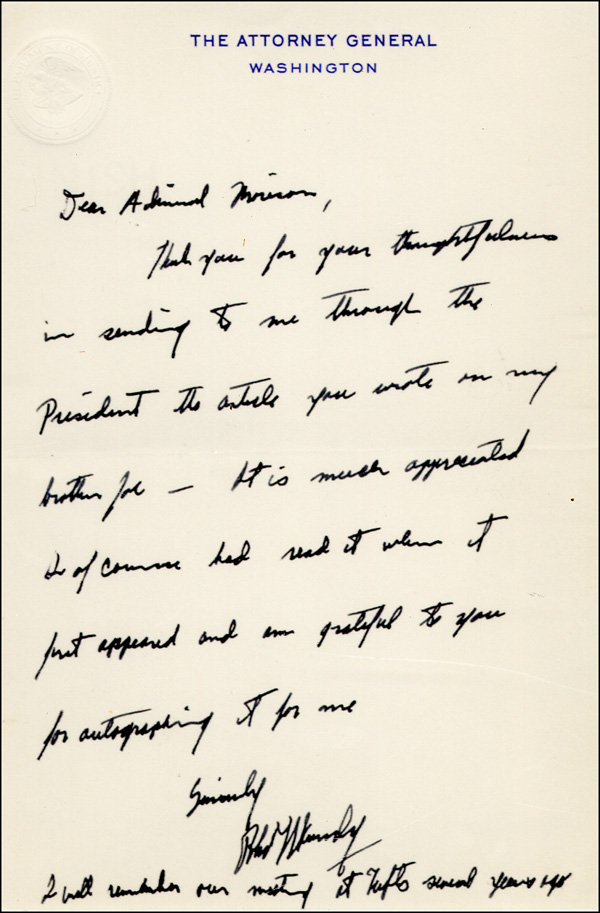 THE ATTORNEY GENERAL
WASHINGTON
Dear Admiral Morison,
Thank you for your thoughtfulness
in sending to me through the
President the article you wrote on my
brother Joe — It is much appreciated
I of course had read it when it
first appeared and am grateful to you
for autographing it for me
Sincerely
Robt Kennedy
I well remember our meeting at Tufts several years ago